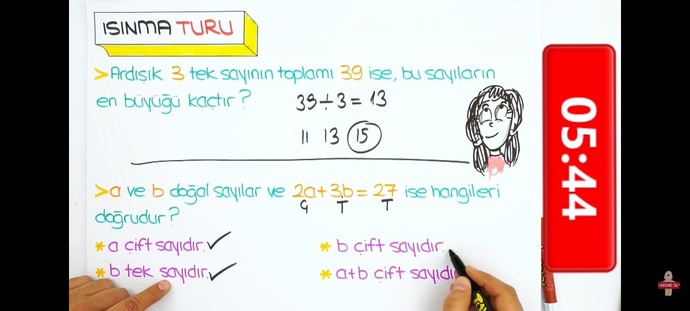 ISINMA TURU
>Ardışık 3 tek sayının toplamı 39 ise, bu sayıların
en büyüğü kaçtır?
39÷3=13
11 13 15
>a ve b doğal sayılar ve 2a+3b=27 ise hangileri
Ç T T
doğrudur?
*a çift sayıdır. ✓
*b çift sayıdır.
*b tek sayıdır. ✓
*a+b çift sayıdı
05:44
ABONE OL